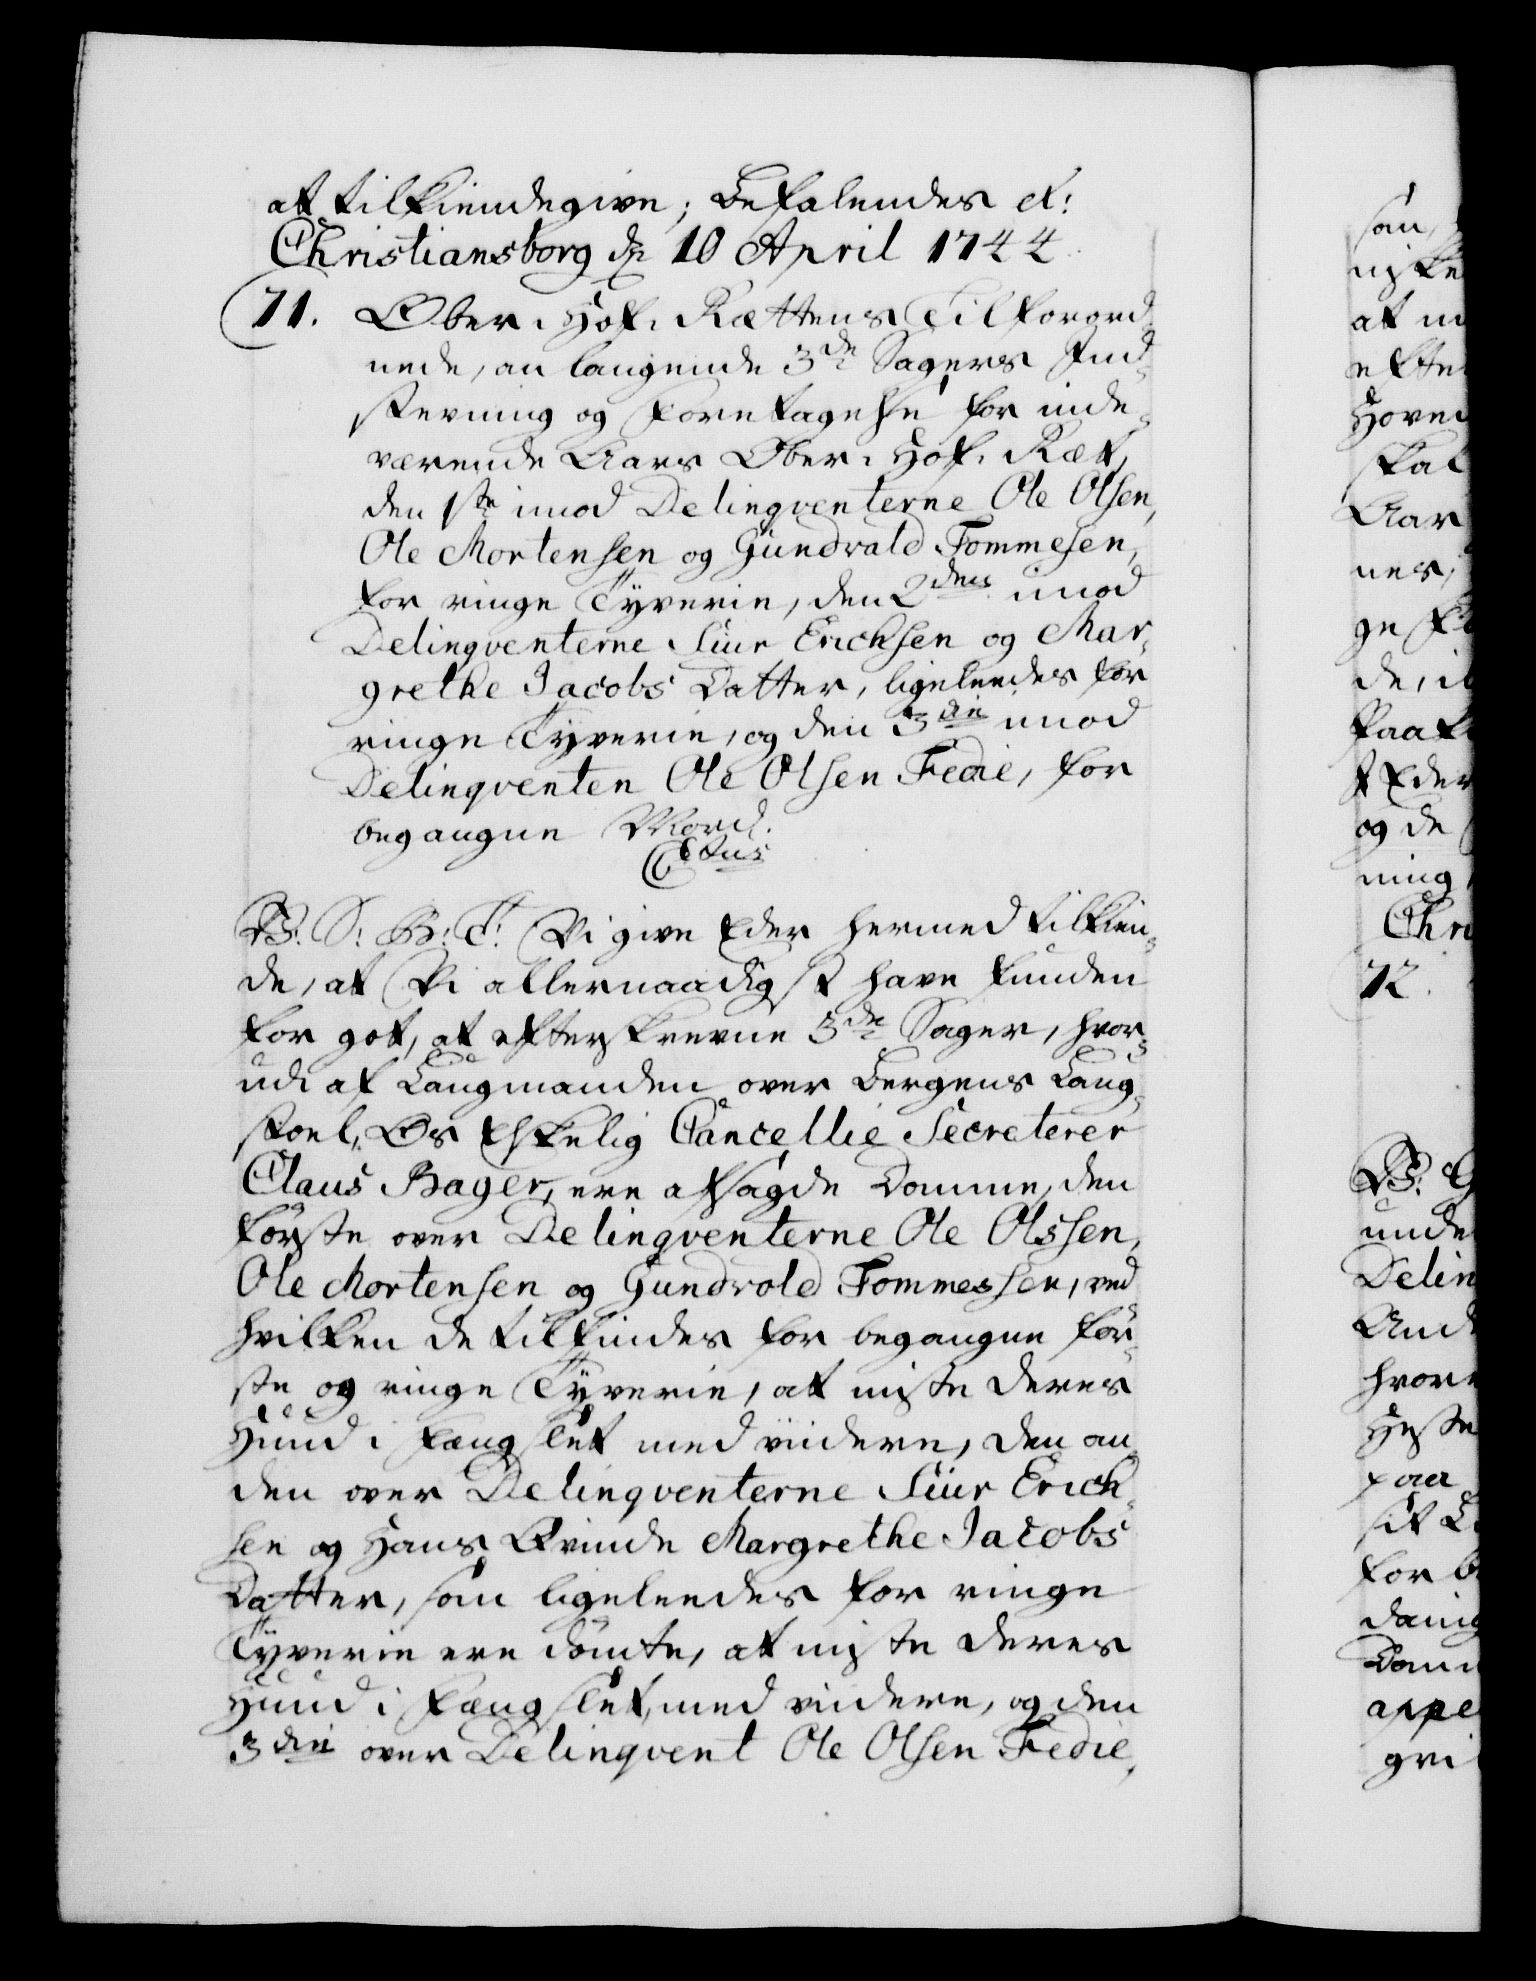 at tilkiendegive; Befalendes et:
Christiansborg dn 10 April 1744
71. Ober-Hof-Rættens Tilforord-
nede, anlangende 3de Sagers Ind-
stevning og Foretagelse for inde-
værende Aars Ober-Hof-Ræt,
den 1ste imod Delinqventerne Ole Olsen,
Ole Mortensen og Gundvald Tommesen,
for ringe Tyverie, den 2den imod
Delinqventerne Siur Ericksen og Mar-
grethe Jacobs Datter, ligeleedes for
ringe Tyverie, og den 3die imod
Delinqventen Ole Olsen Fedie, for
begangne Mord.
V: S: G: T: Vi give Eder hermed tilkien-
de, at Vi allernaadigst have funden
for got, at efterskrevne 3de Sager, hvor-
udi af Laugmanden over Bergens Laug-
stoel, Os Elskelig Cancellie Secreterer
Claus Bager, ere afsagde Domme, den
første over Delinqventerne Ole Olssen,
Ole Mortensen og Gundvold Tommessen, ved
hvilken de tilfindes for begangne før-
ste og ringe Tyverie, at miste deres
Hud i Fængslet med viidere, den an-
den over Delinqventerne Siur Erick-
sen og Hans Qvinde Margrethe Jacobs
Datter, som ligeleedes for ringe
Tyverie ere dømte, at miste deres
Hud i Fængslet, med viidere, og den
3die over Delinqvent Ole Olsen Fedie,
som
at
Hoved
skal
Aar
og de
ning
Chri
72.
unde
Delin
hvor
paa
for
appe